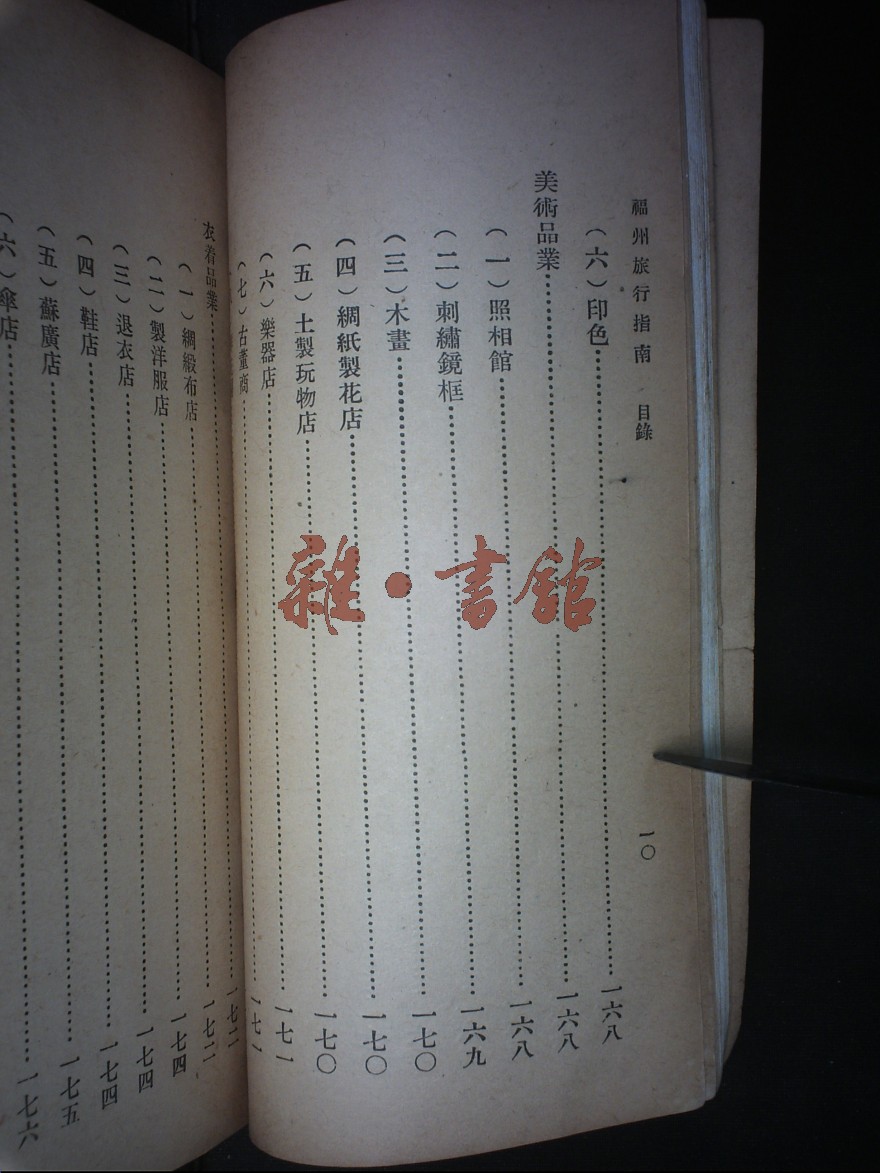 福州旅行指南 目錄 一〇
（六）印色……一六八
美術品業……一六八
（一）照相館……一六八
（二）刺繡鏡框……一六九
（三）木畫……一七〇
（四）綢紙製花店……一七〇
（五）土製玩物店……一七〇
（六）樂器店……一七一
（七）古董商……一七一
衣着品業……一七二
（一）綢緞布店……一七二
（二）製洋服店……一七四
（三）退衣店……一七四
（四）鞋店……一七四
（五）蘇廣店……一七五
（六）傘店……一七六
雜·書館